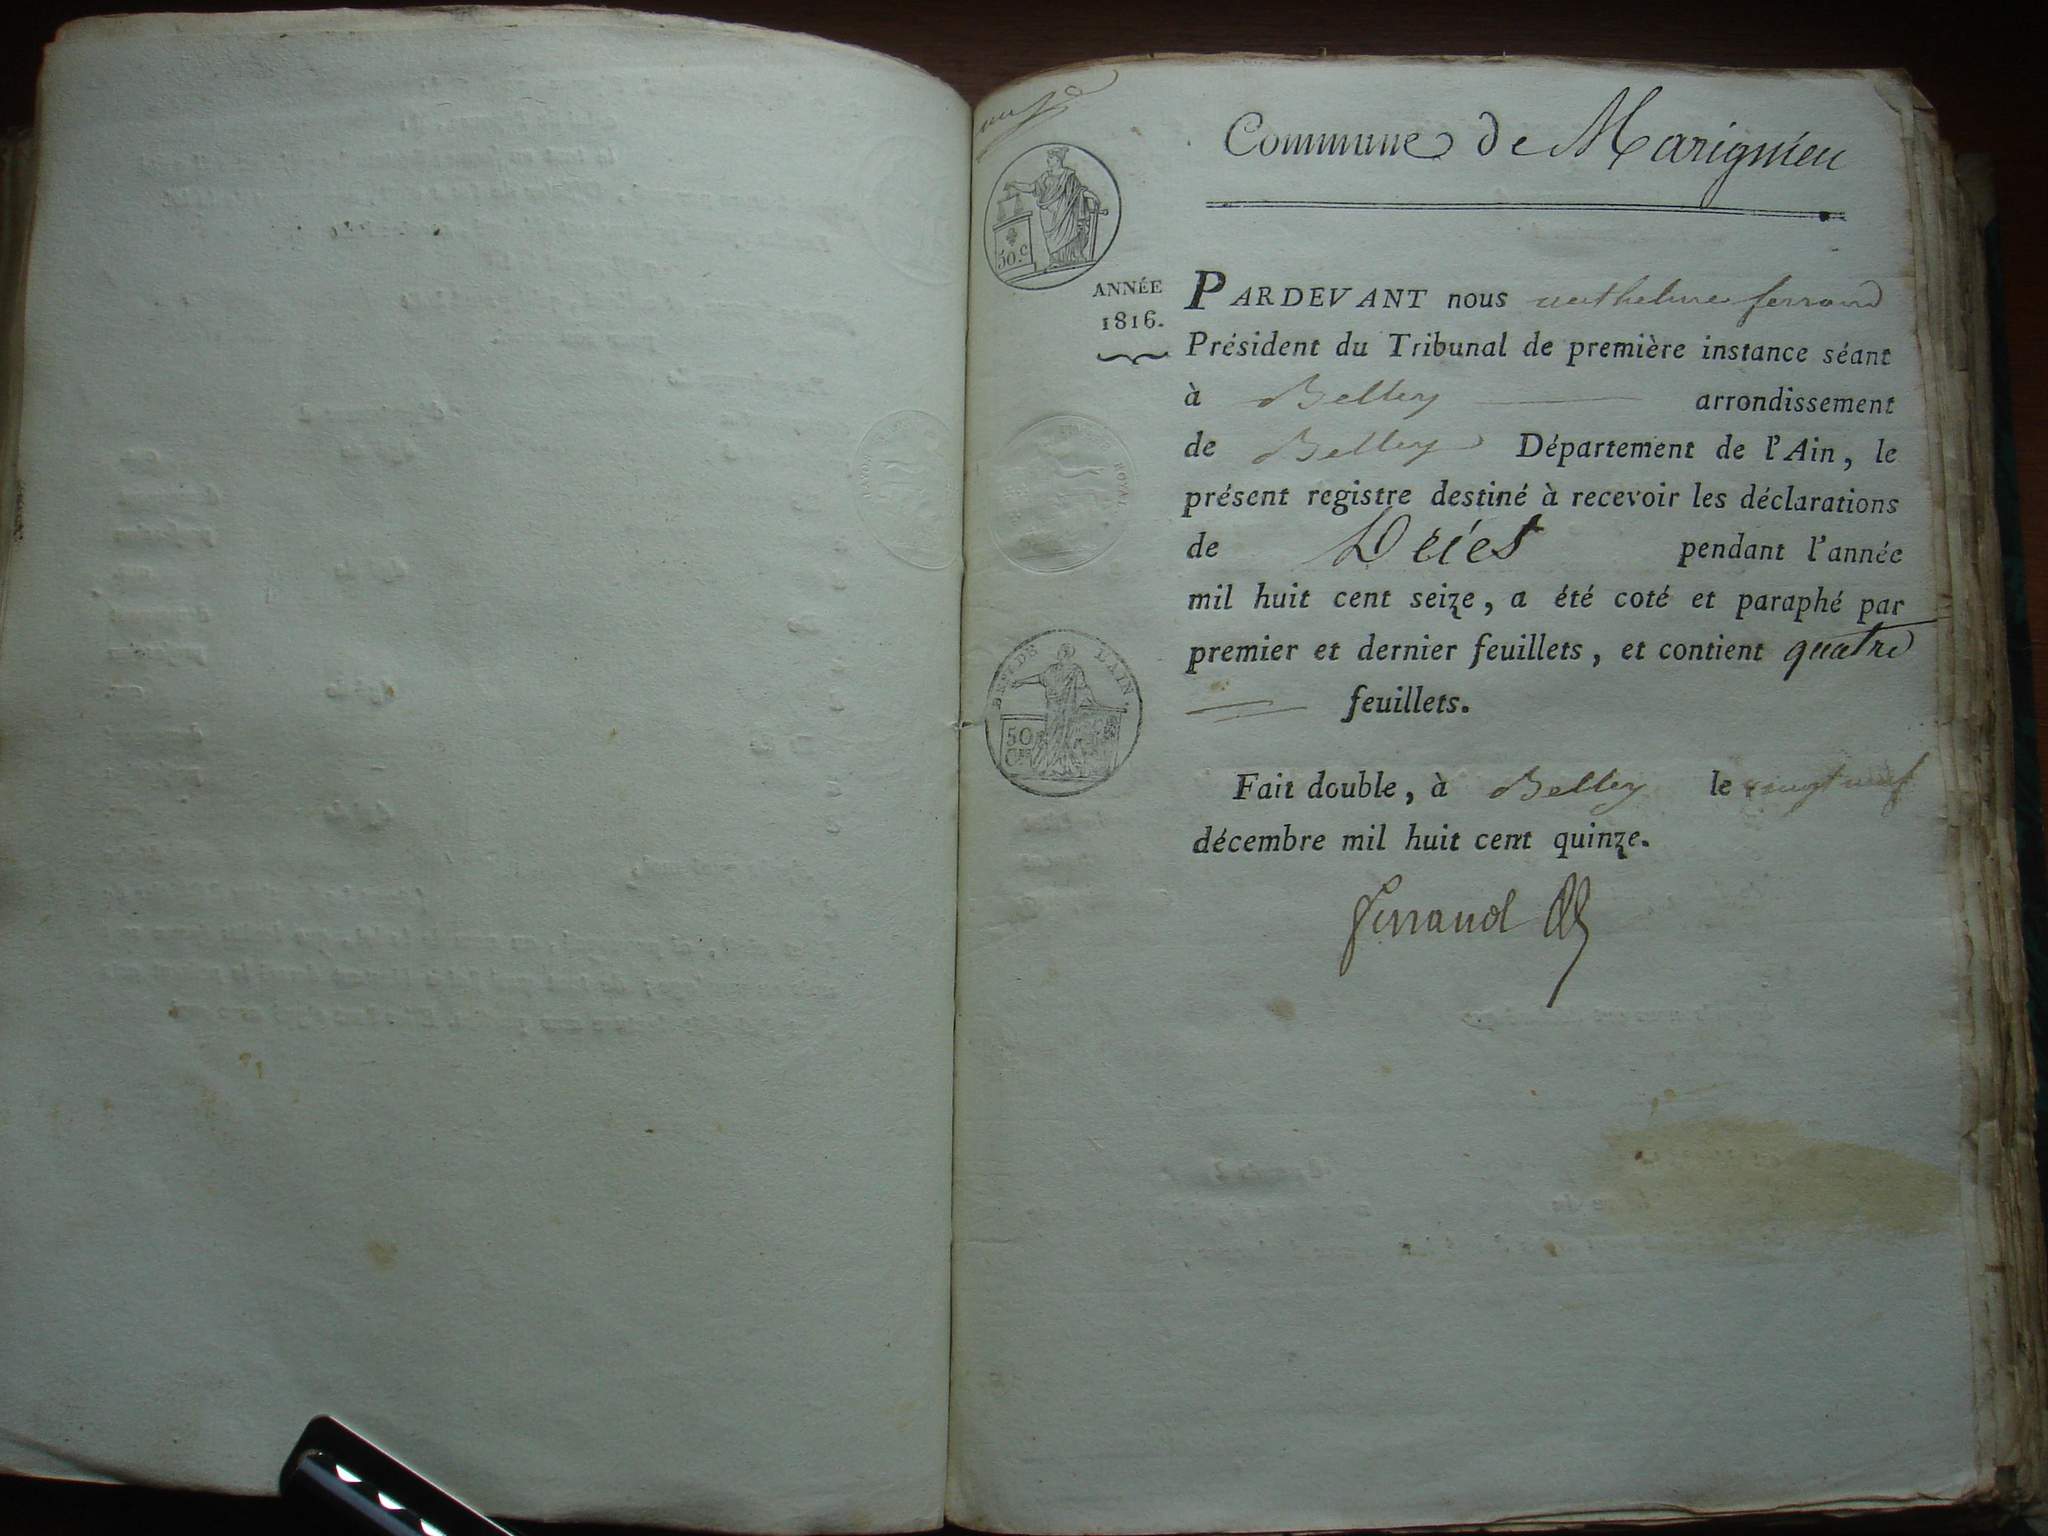 Commune de Marignieu
50.c
ANNÉE
1816.
PARDEVANT nous anthelme ferrand
Président du Tribunal de première instance séant
à Belley arrondissement
de Belley Département de l'Ain, le
présent registre destiné à recevoir les déclarations
de Décès pendant l'année
mil huit cent seize, a été coté et paraphé par
premier et dernier feuillets, et contient quatre
feuillets.
DEP. DE L'AIN
50
Ces
Fait double, à Belley le vingt neuf
décembre mil huit cent quinze.
ferrand